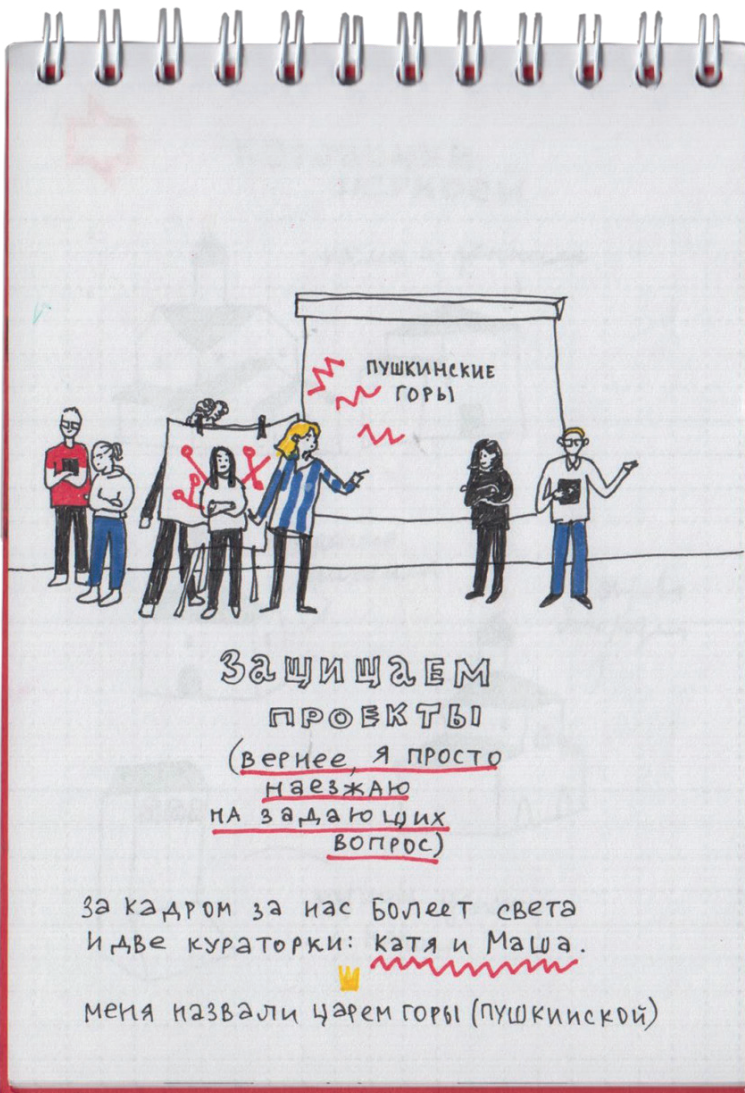 ПУШКИНСКИЕ
ГОРЫ
ЗАЩИЩАЕМ
ПРОЕКТЫ
(вернее, я просто
наезжаю
на задающих
вопрос)
За кадром за нас болеет света
и две кураторки: Катя и Маша.
меня назвали царем горы (пушкинской)